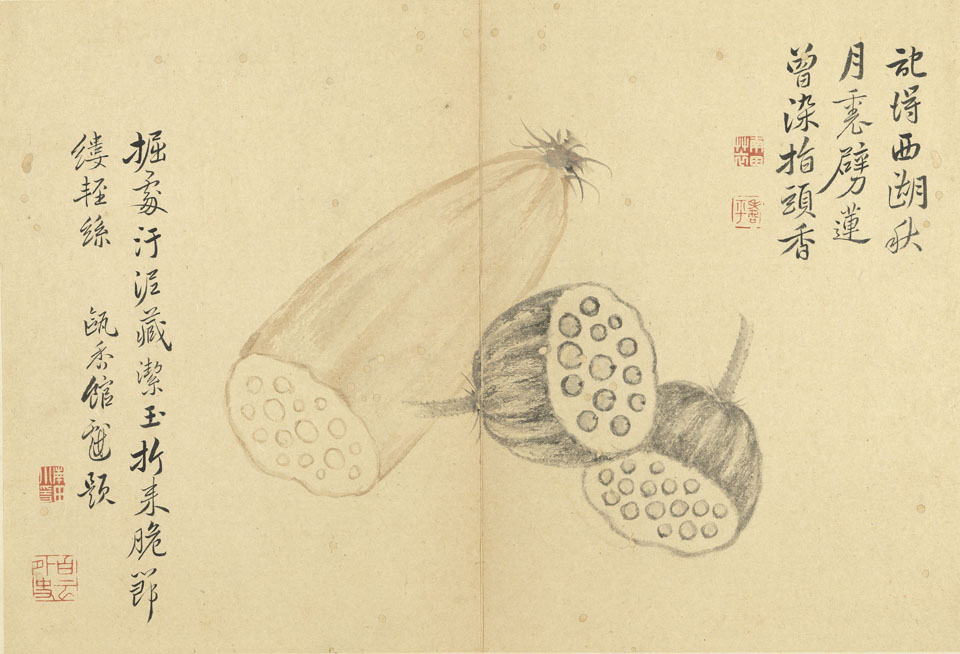 記得西湖秋
月裏劈蓮
曾染指頭香
壽平
掘處汙泥藏潔玉折來脆節
縷輕絲
甌香館戲題
白云外史